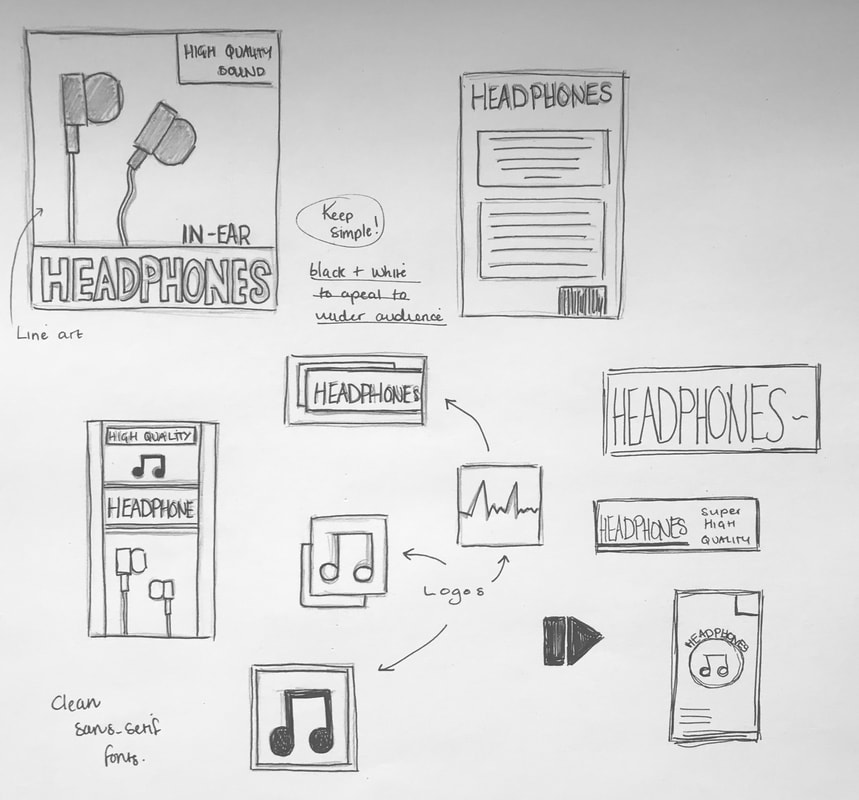 HIGH QUALITY
SOUND
IN-EAR
HEADPHONES
Line art
Keep
simple!
black + white
to apeal to
wider audience
HEADPHONES
HEADPHONES
HEADPHONES
HIGH QUALITY
HEADPHONE
HEADPHONES
Super
HIGH
QUALITY
Logos
HEADPHONES
Clean
sans-serif
fonts.